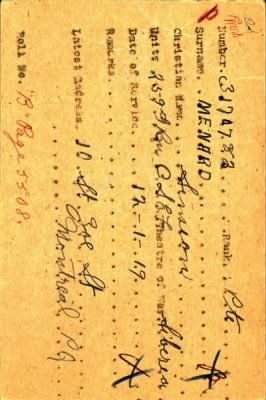 Number. 3174782 Rank. Pte
Surname. MENARD.
Christian Name. Simeon
Units 259th Bn C.S.E.F. Theatre of War. Siberia
Date of Service. 12-1-19.
Remarks.
Latest Address. 10 St Zoe St
Montreal PQ
Roll No. "B" Page 5508.